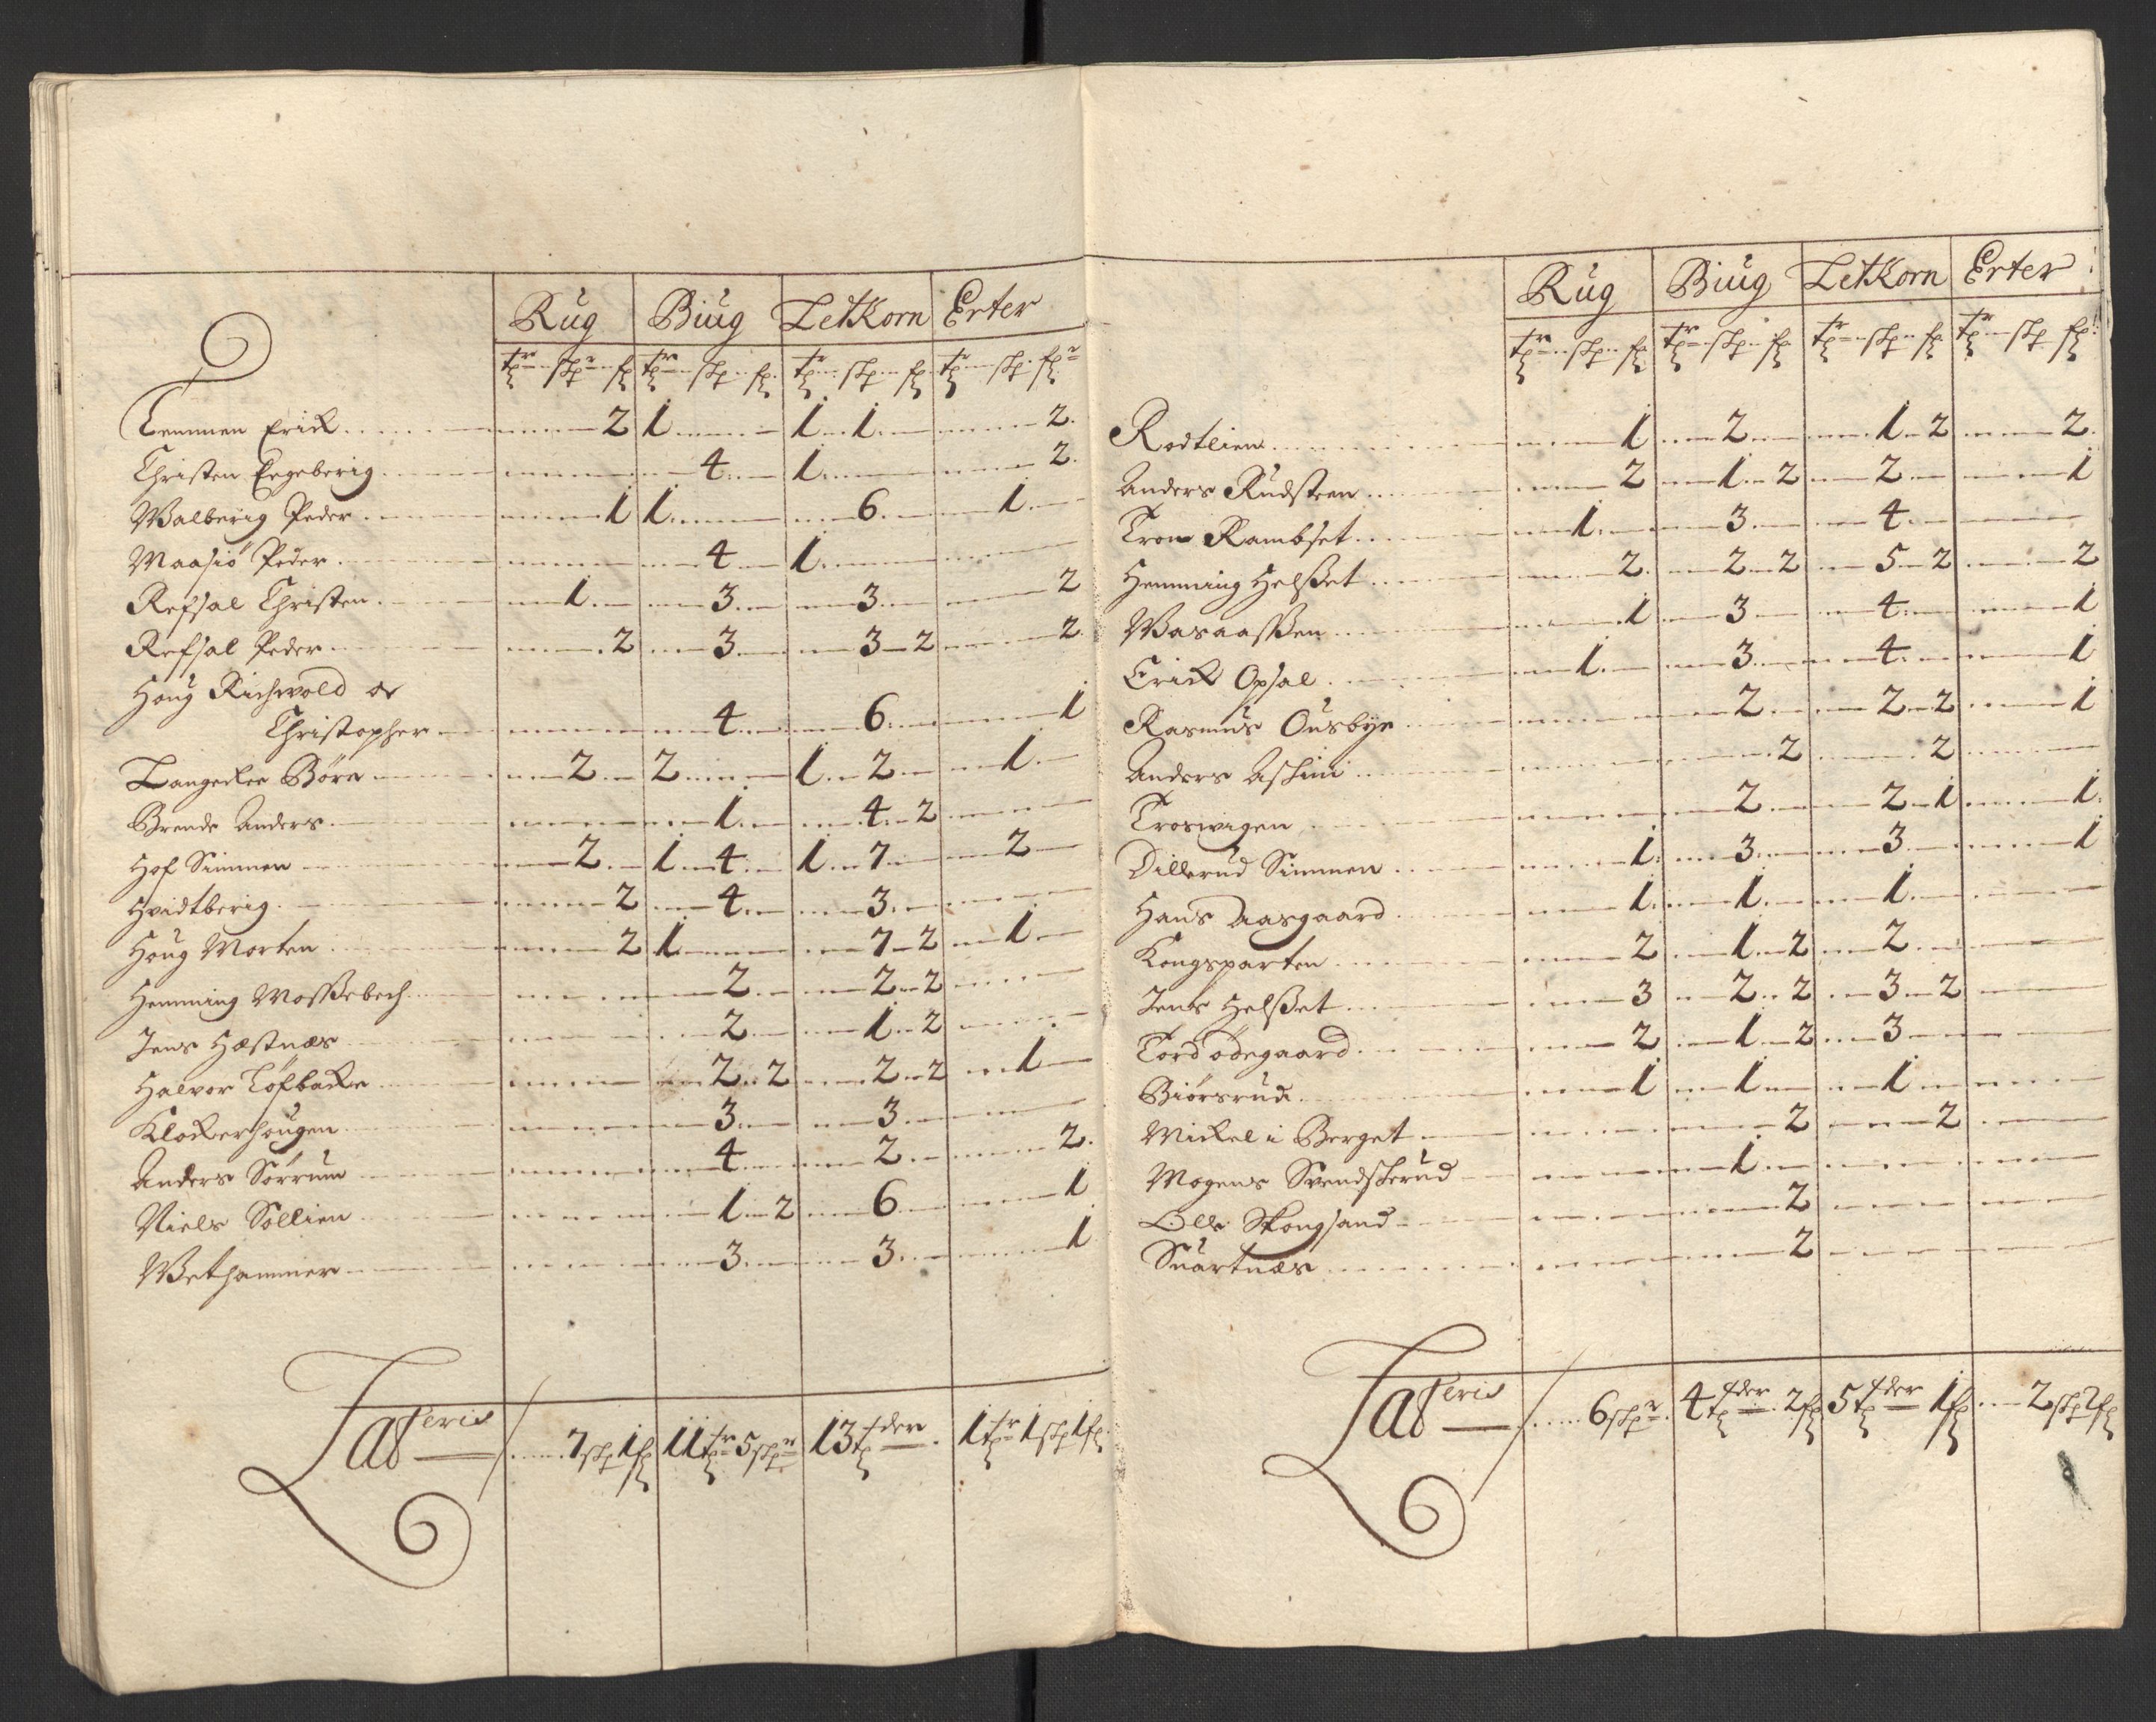 Rug Biug Letkorn Erter
tr skpr fr tr skp fr tr skp fr tr skp fr
Lemmen Erick 2 1 1 1 2
Christen Engeberig 4 1 2
Walberig Peder 1 1 6 1
Maasiø Peder 4 1
Refsal Christen 1 3 3 2
Refsal Peder 2 3 3 2 2
Houg Richwold oc
Christopher 4 6 1
Langeche Børn 2 2 1 2 1
Brende Anders 1 4 2
Hof Simmen 2 1 4 1 7 2
Hvidtberig 2 4 3
Houg Morten 2 1 7 2 1
Hemming Mosßebech 2 2 2
Jens Hæstnæs 2 1 2
Halvor Tøfbacke 2 2 2 2 1
Klockerhougen 3 3
Anders Sørrum 4 2 2
Niels Søllien 1 2 6 1
Wethammer 3 3 1
Lateris 7 skp 1 f 11 tr 5 skpr 13 tder 1 tr 1 skp 1 f
Rug Biug Letkorn Erter
tr skp fr tr skp fr tr skp fr tr skp fr
Rodtlien 1 2 1 2 2
Anders Rudsteen 2 1 2 2 1
Tron Rambset 1 3 4
Hemming Helßet 2 2 2 5 2 2
Wasaaßen 1 3 4 1
Erick Opsal 1 3 4 1
Rasmus Ousbye 2 2 2 1
Anders 2 2
Troswigen 2 2 1 1
Dillerud Simmen 1 3 3 1
Hans Aasgaard 1 1 1
Kongsparten 2 1 2 2
Jens Helßet 3 2 2 3 2
Tord ødegaard 2 1 2 3
Biørsrud 1 1 1
Mickel i Berget 2 2
Mogens Svendsterud 1
Olle Skougsand 2
Suartnæs 2
Lateris 6 skpr 4 tder 2 f 5 tder 1 f 2 skp 2 f